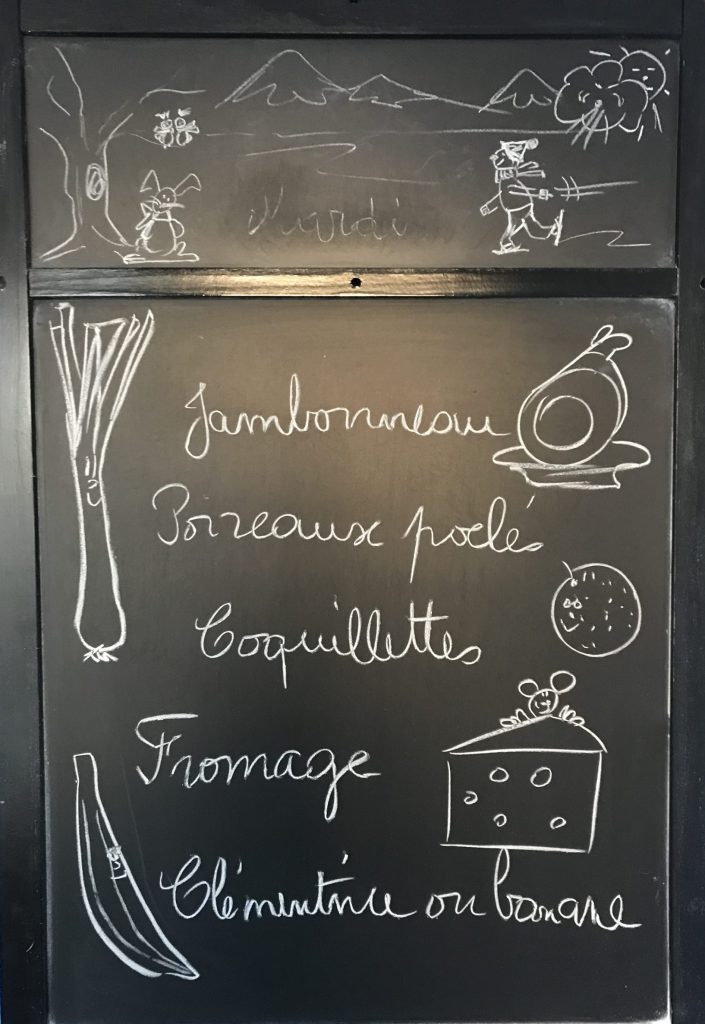 Mardi
Jambonneau
Poireaux poêlés
Coquillettes
Fromage
Clémentine ou banane